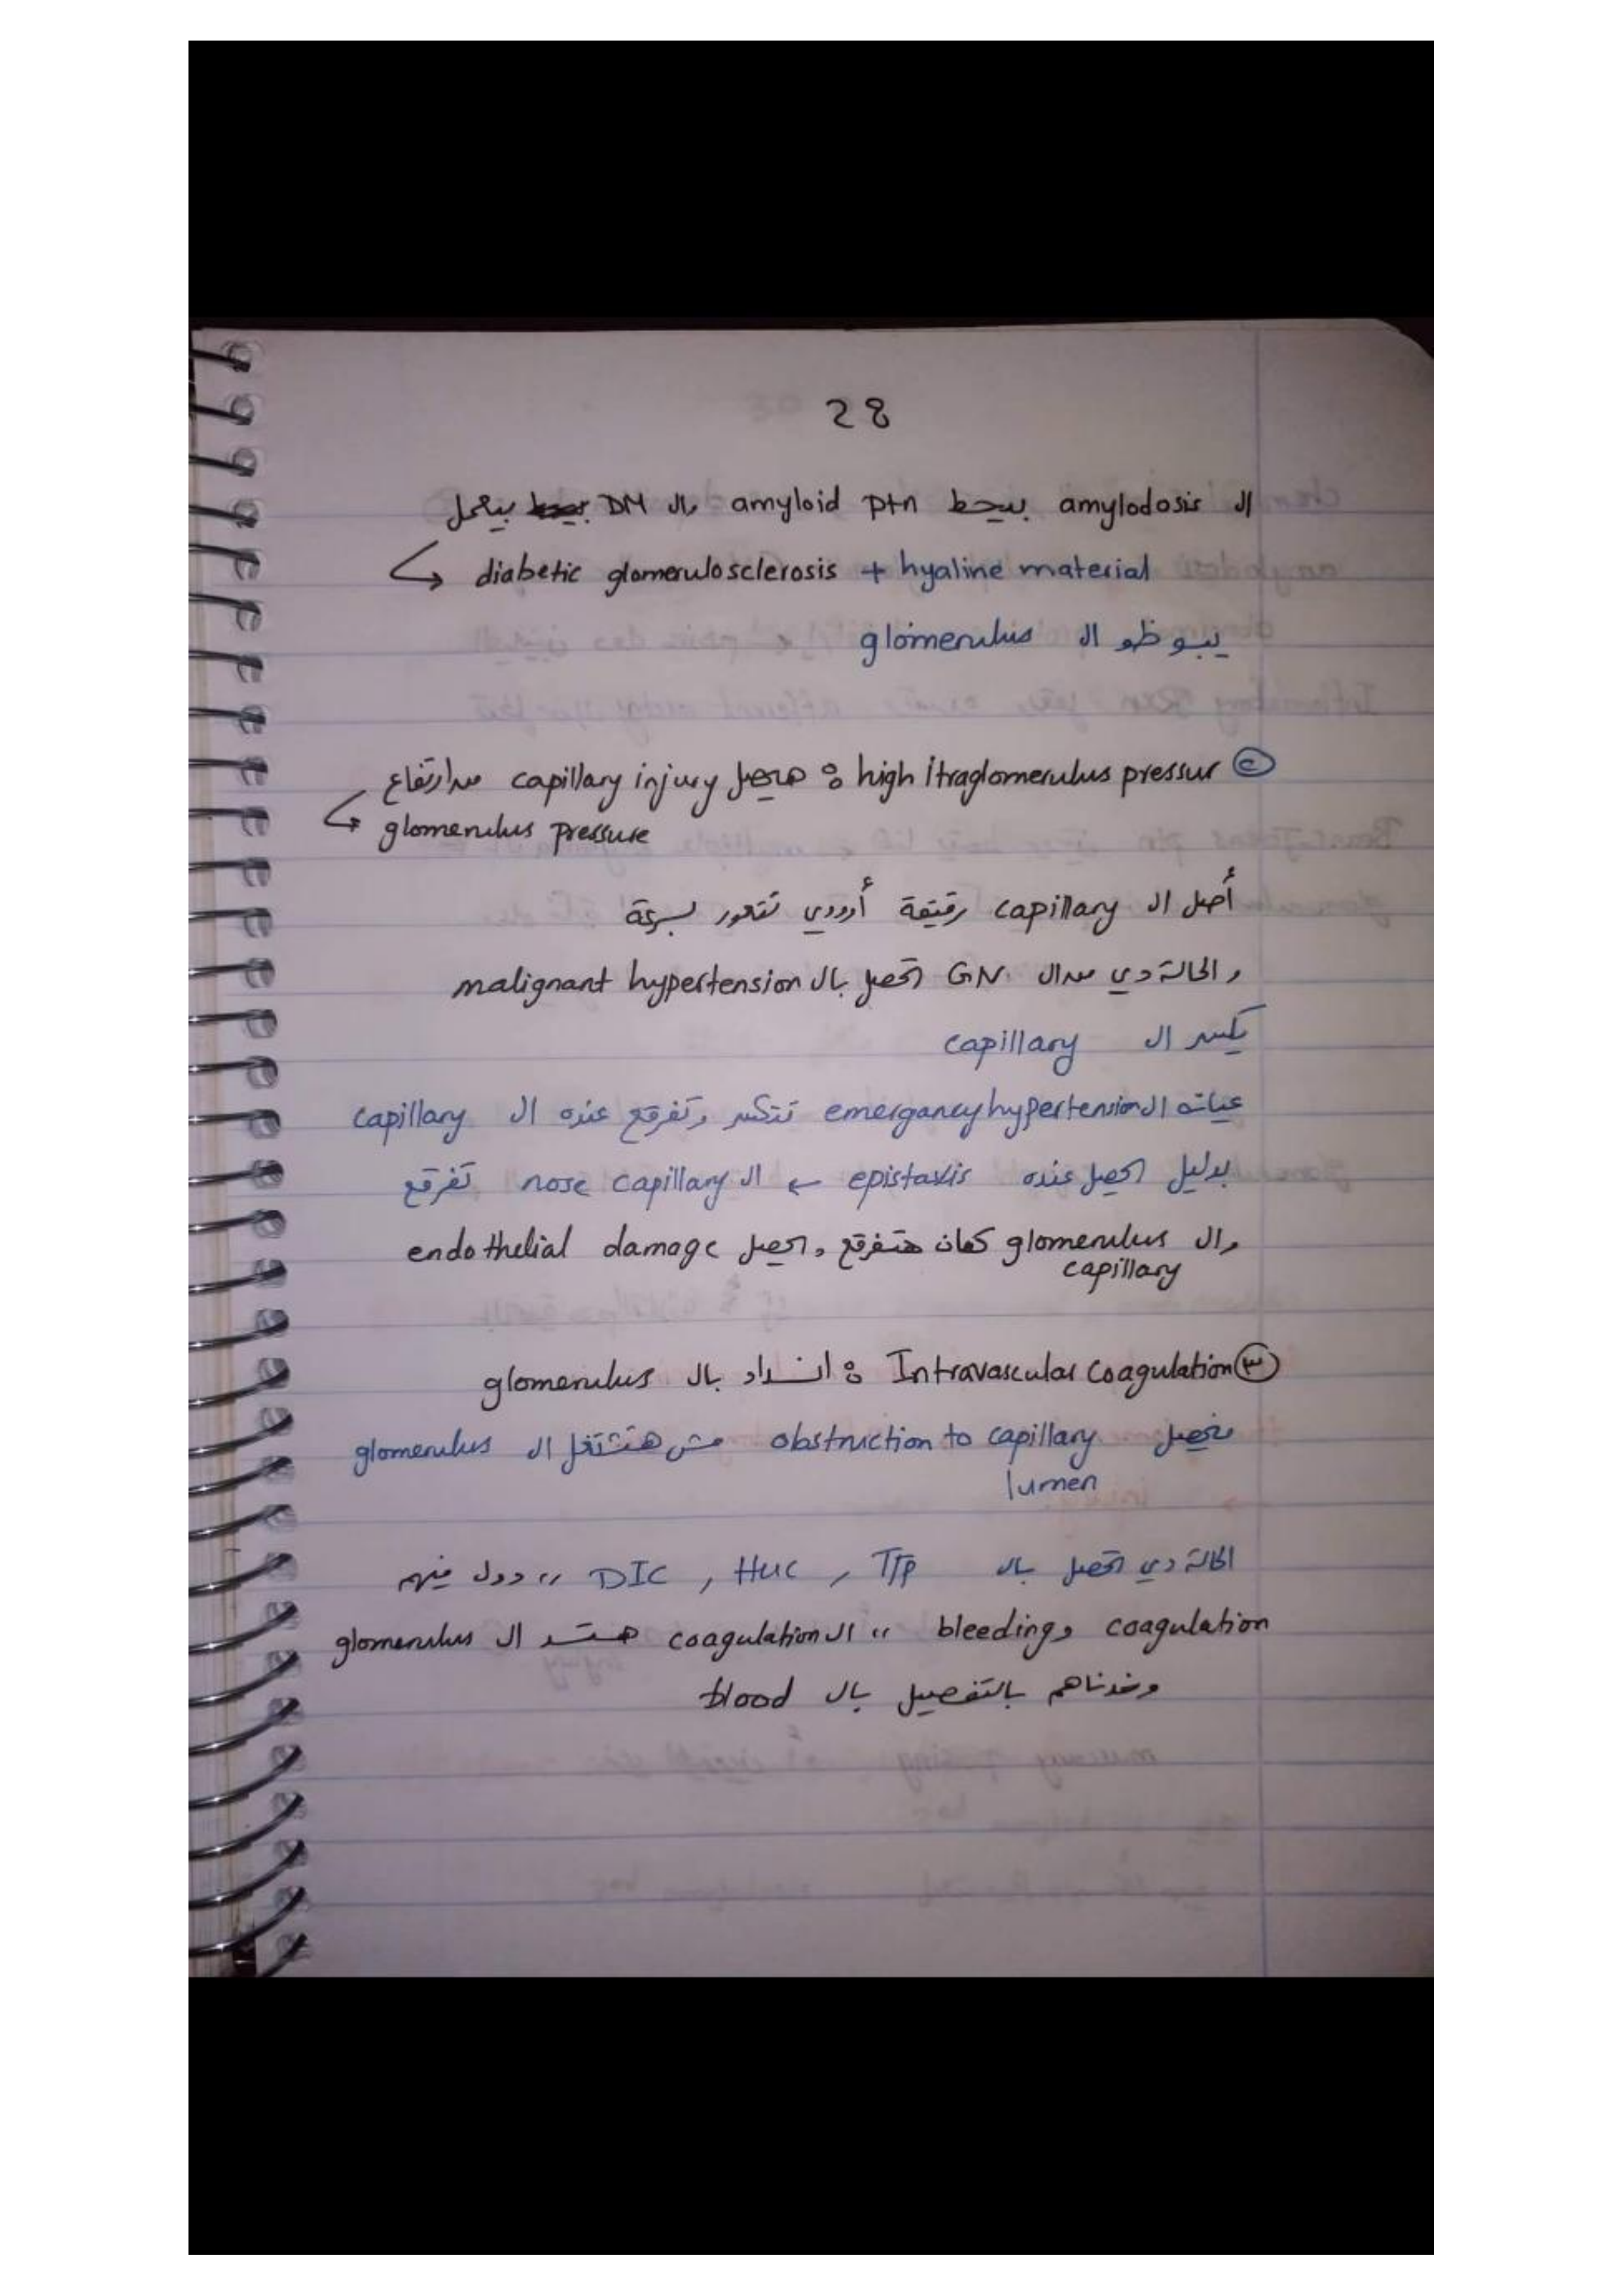 28
ال amylodosis بيحط amyloid ptn وال DM بيعمل
diabetic glomerulosclerosis + hyaline material
يبوظو ال glomerulus
② high Itraglomerulus pressur : هيحصل capillary injury من ارتفاع
glomerulus pressure
أصل ال capillary رقيقة أووي تتعور بسرعة
والحالة دي من ال GN تحصل بال malignant hypertension
يكسر ال capillary
عياته ال emergancy hypertension تتكسر وتفرقع عنده ال capillary
بدليل يحصل عنده epistaxis ← ال nose capillary تفرقع
وال glomerulus كمان هتفرقع ويحصل endothelial damage
capillary
③ Intravascular Coagulation : انسداد بال glomerulus
obstruction to capillary مش هتشتغل ال glomerulus
lumen
الحالة دي تحصل بال TTP , HUC , DIC ,, دول فيهم
coagulation و bleeding ,, ال coagulation هتسد ال glomerulus
وخدناهم بالتفصيل بال blood